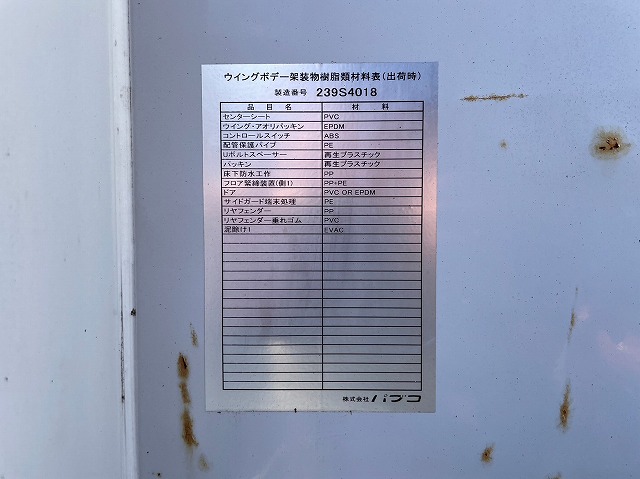 ウイングボデー架装物樹脂類材料表(出荷時)
製造番号 239S4018
品目名 材料
センターシート PVC
ウイング・アオリパッキン EPDM
コントロールスイッチ ABS
配管保護パイプ PE
Uボルトスペーサー 再生プラスチック
パッキン 再生プラスチック
床下防水工作 PP
フロア緊締装置(側1) PP+PE
ドア PVC OR EPDM
サイドガード端末処理 PE
リヤフェンダー PP
リヤフェンダー垂れゴム PVC
泥除け1 EVAC
株式会社 パブコ